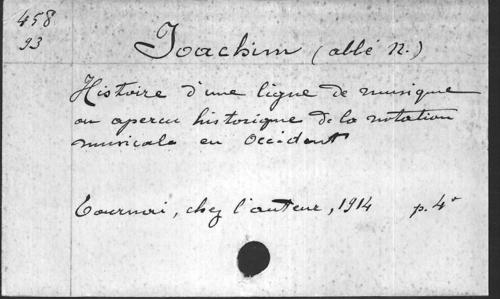 458
93
Joachim (abbé N.)
Histoire d'une ligne de musique
ou apercu historique de la notation
musicale en Occident
Tournai, chez l'auteur, 1914 p. 4°